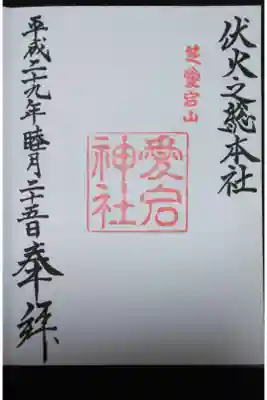 伏火之総本社
芝愛宕山
愛宕
神社
奉拝
平成二十九年睦月二十五日